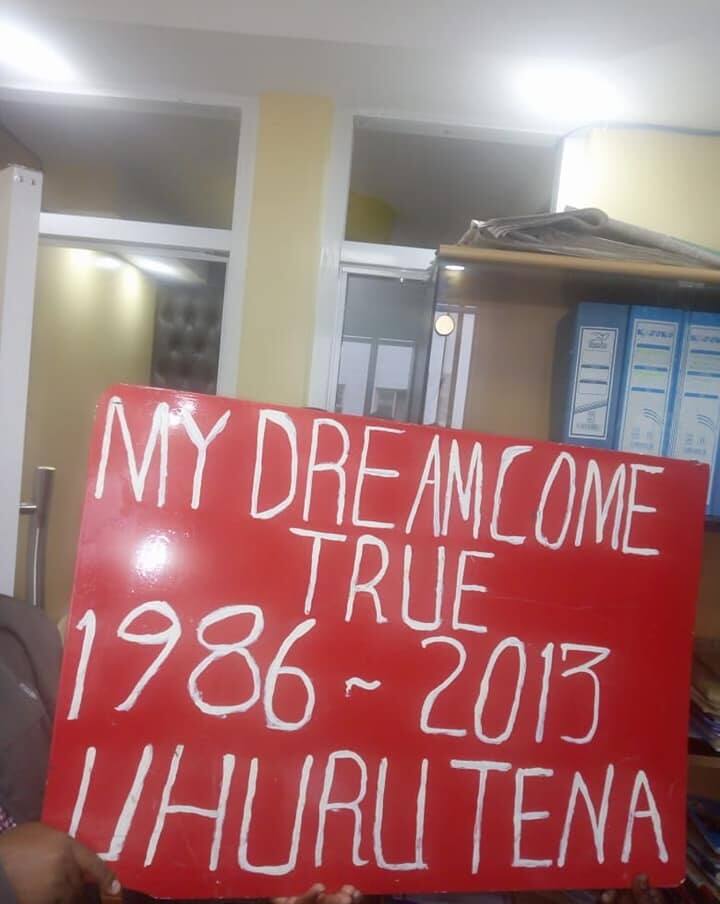 MY DREAM COME
TRUE
1986~2013
UHURU TENA